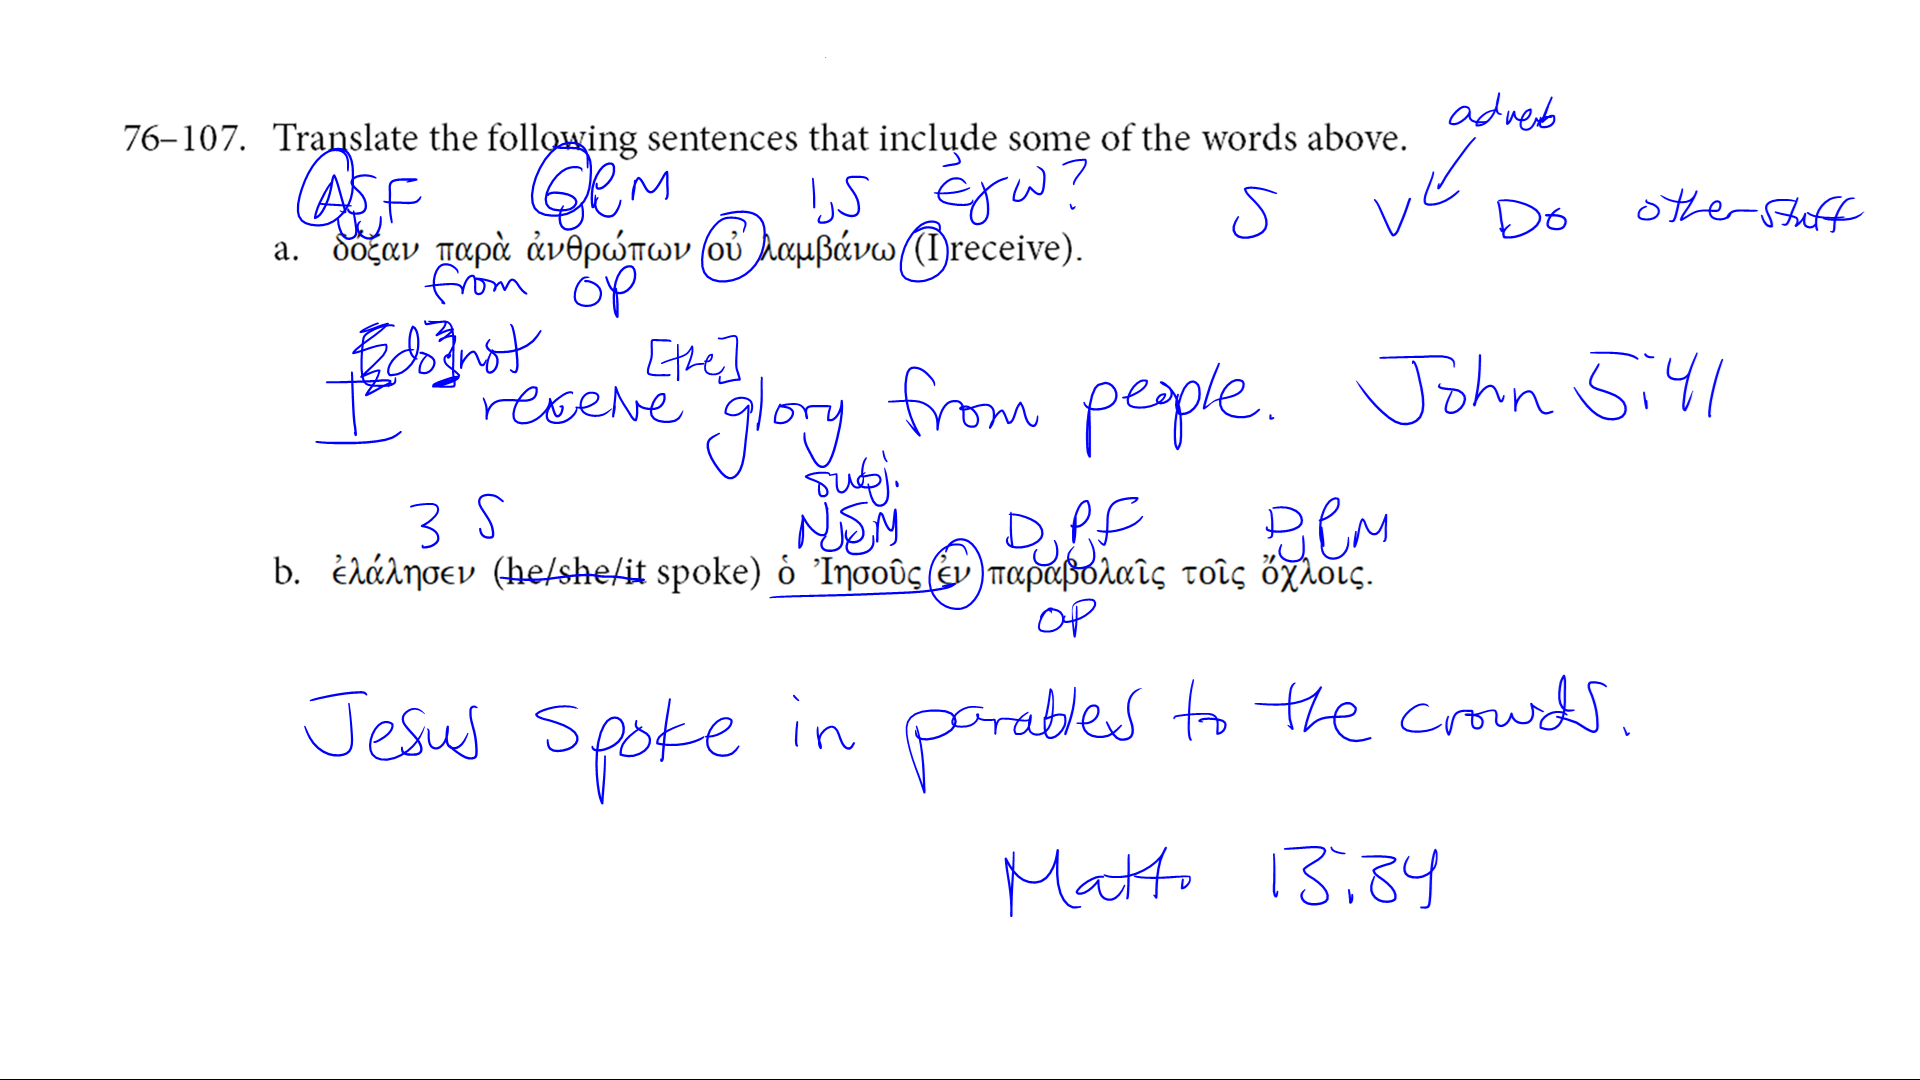 adverb
76–107. Translate the following sentences that include some of the words above.
ASF GPM 1S ἐγω? S V DO other stuff
a. δόξαν παρὰ ἀνθρώπων οὐ λαμβάνω (I receive).
from OP
[do] not [the]
I receive glory from people. John 5:41
subj.
3 S NSM DPF DPM
b. ἐλάλησεν (he/she/it spoke) ὁ Ἰησοῦς ἐν παραβολαῖς τοῖς ὄχλοις.
OP
Jesus spoke in parables to the crowds.
Matt 13:34